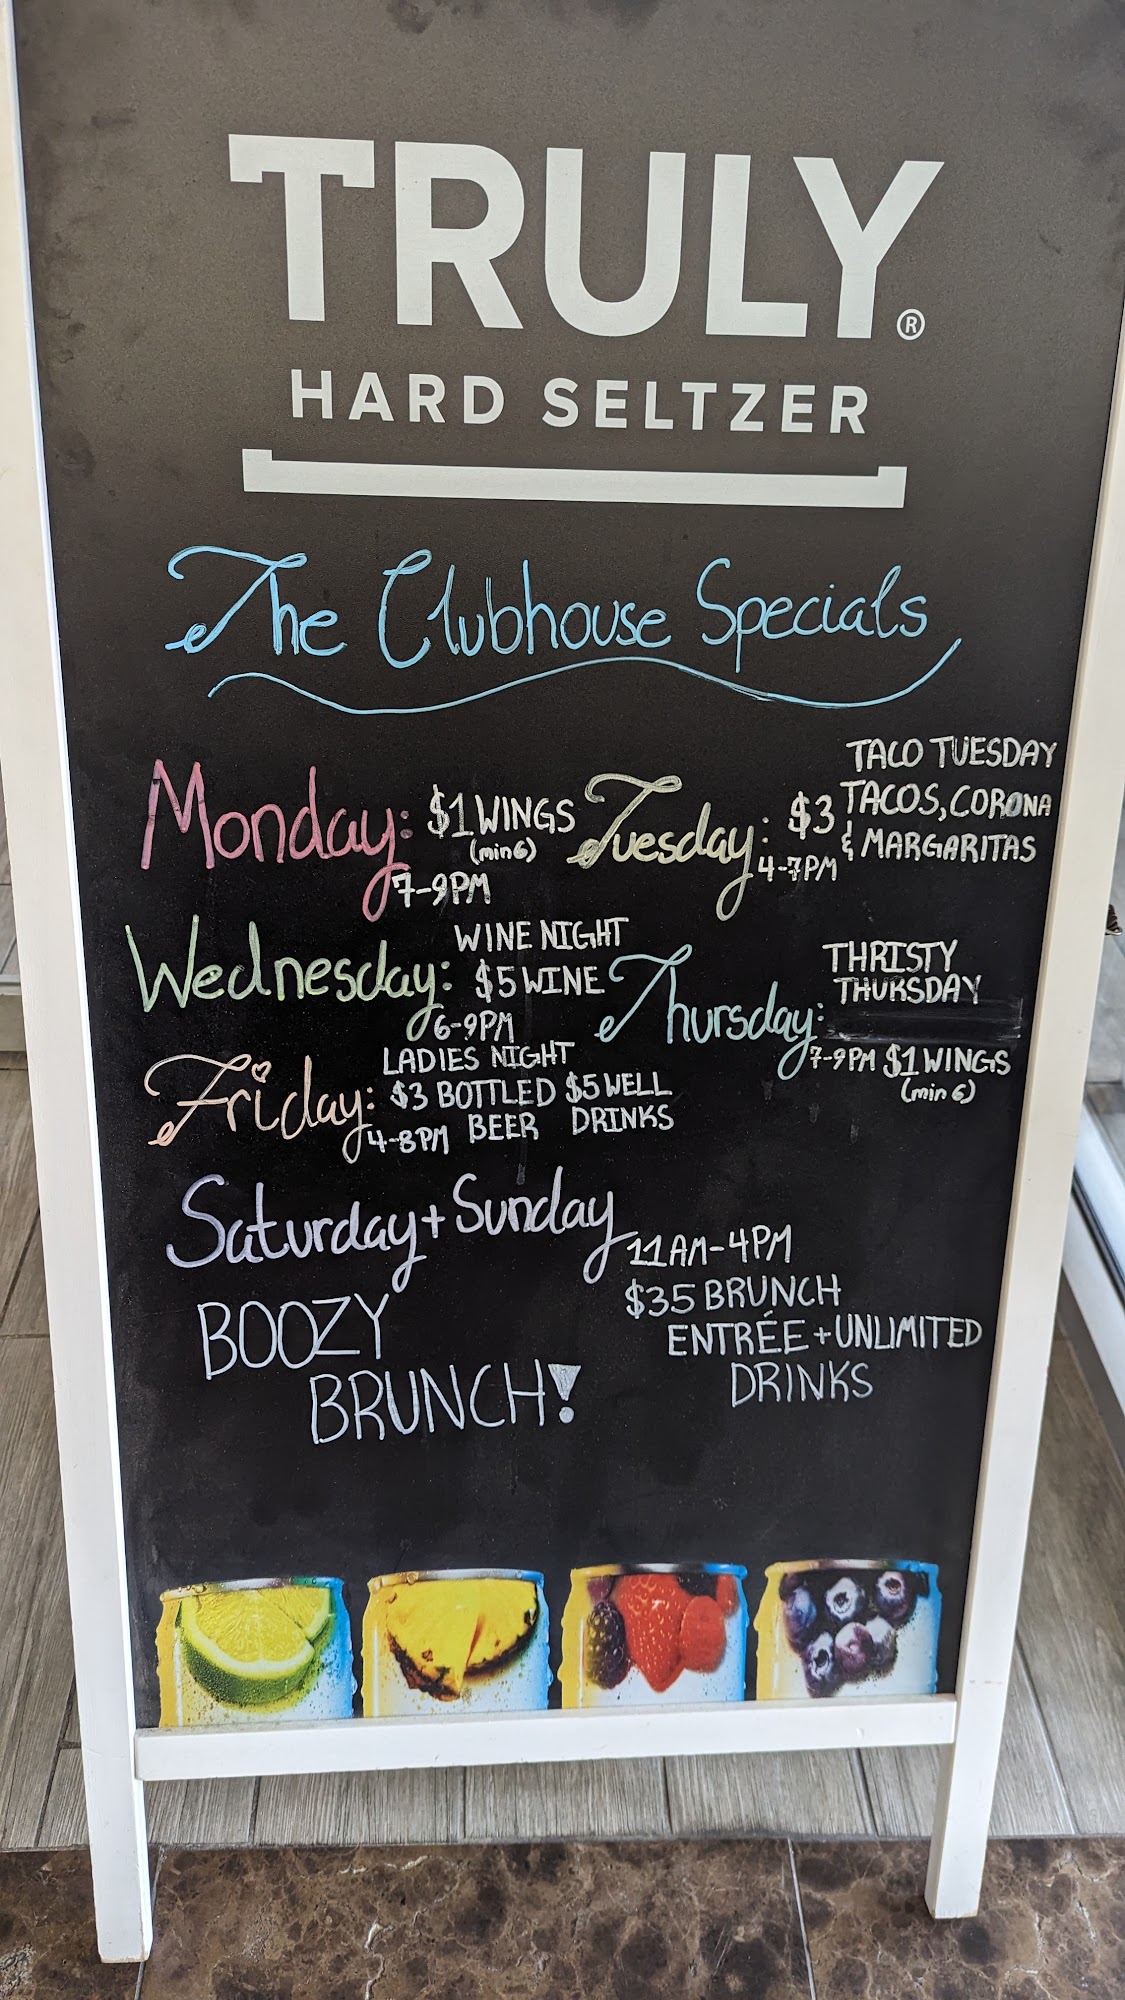 TRULY®
HARD SELTZER
The Clubhouse Specials
Monday: $1 WINGS
(min 6)
7-9PM
Tuesday: $3 TACO TUESDAY
TACOS, CORONA
& MARGARITAS
4-7PM
Wednesday: WINE NIGHT
$5 WINE
6-9PM
Thursday: THRISTY
THURSDAY
7-9PM $1 WINGS
(min 6)
Friday: LADIES NIGHT
$3 BOTTLED $5 WELL
4-8PM BEER DRINKS
Saturday + Sunday
11AM-4PM
BOOZY
BRUNCH!
$35 BRUNCH
ENTRÉE + UNLIMITED
DRINKS